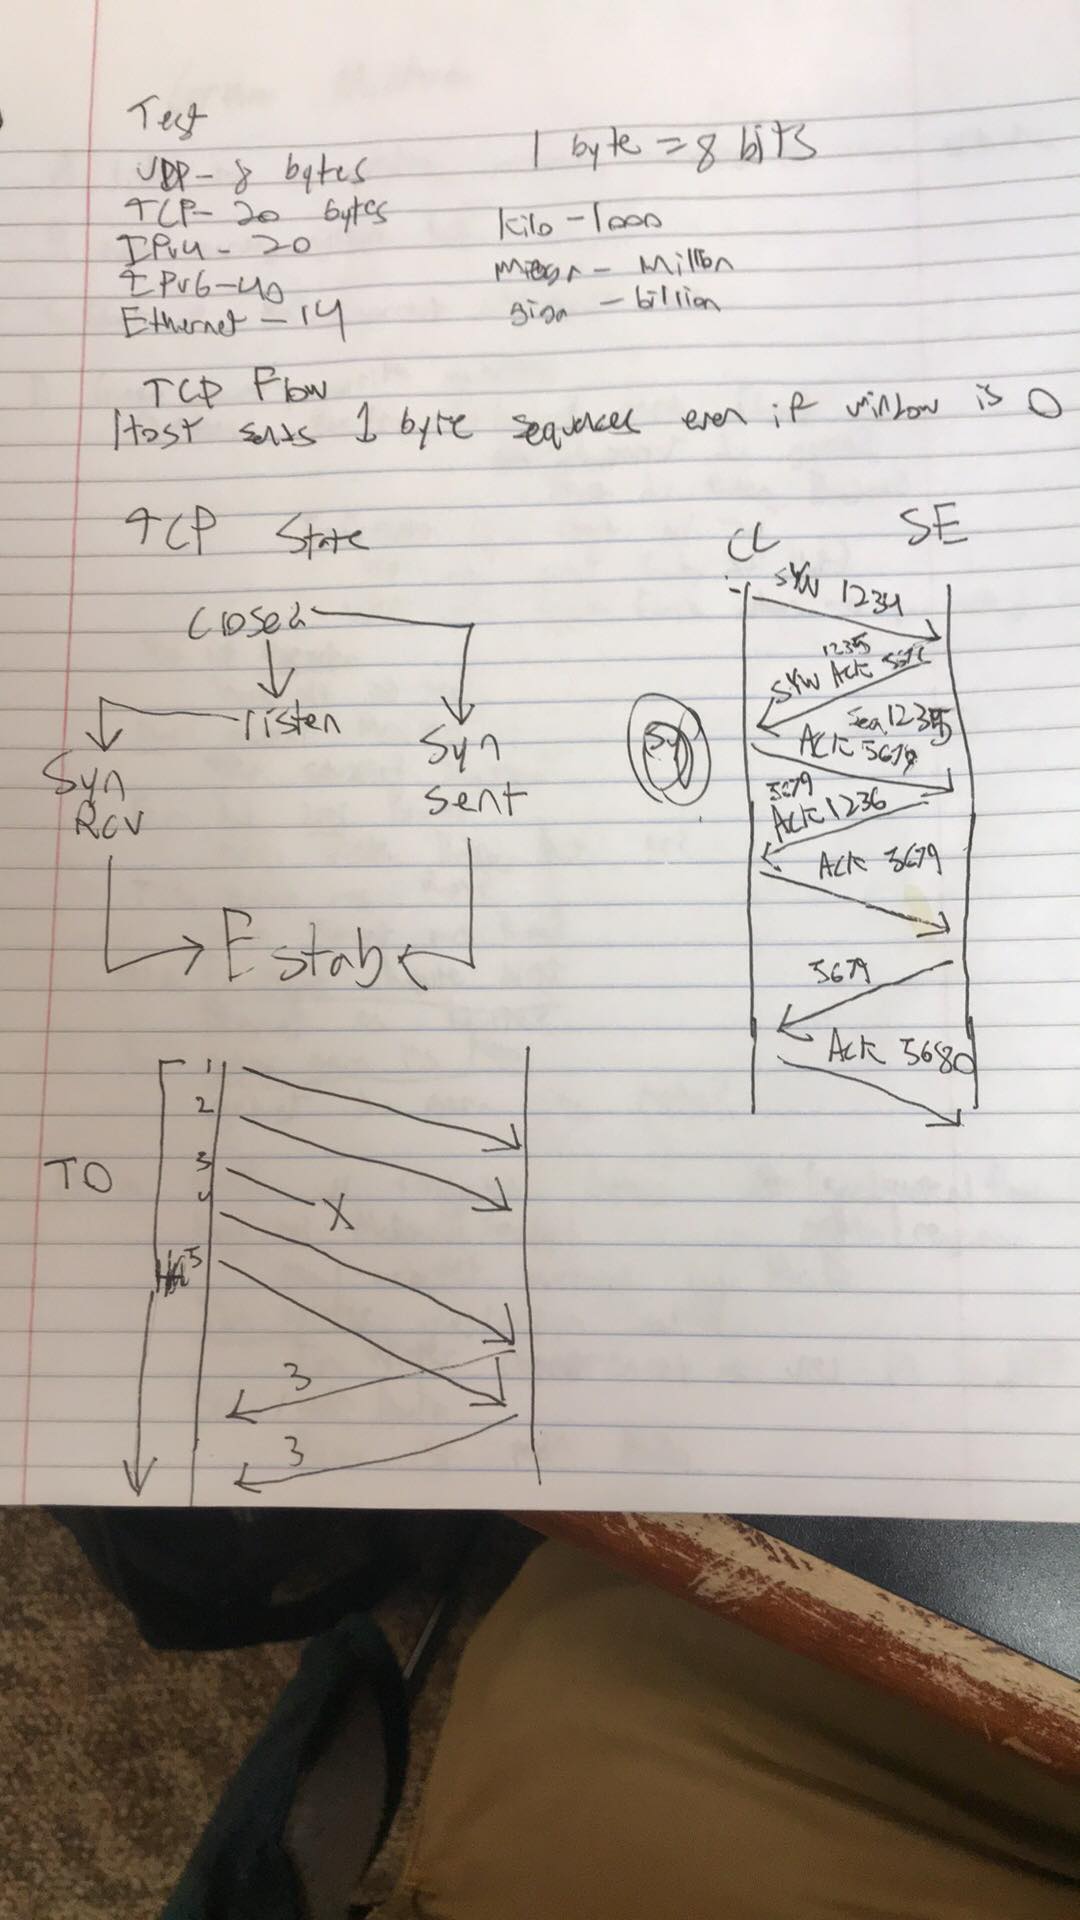 Test
UDP - 8 bytes
1 byte = 8 bits
TCP - 20 bytes
IPv4 - 20
IPv6 - 40
Ethernet - 14
kilo - 1000
- Million
giga - billion
TCP Flow
Host sends 1 byte sequences even if window is 0
TCP State
Closed
listen
Syn
Rcv
Syn
Sent
Estab
CL SE
SYN 1234
1235
SYN Ack
Seq 1235
Ack 5679
5679
Ack 1236
Ack 5679
5679
Ack 5680
TO
1
2
3
X
4
5
3
3